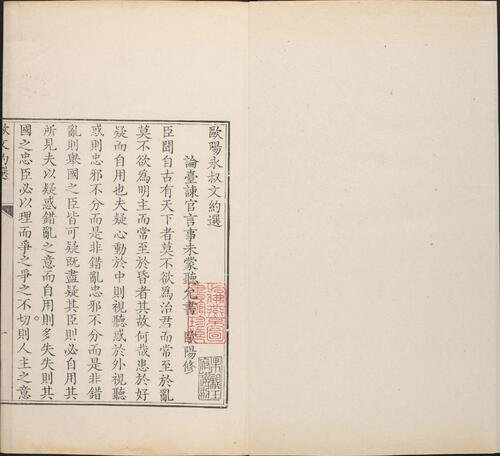 歐陽永叔文約選
論臺諫官言事未蒙聽允書 歐陽修
臣聞自古有天下者莫不欲為治君而常至於亂
莫不欲為明主而常至於昏者其故何哉患於好
疑而自用也夫疑心動於中則視聽惑於外視聽
惑則忠邪不分而是非錯亂忠邪不分而是非錯
亂則舉國之臣皆可疑既盡疑其臣則必自用其
所見夫以疑惑錯亂之意而自用則多失失則其
國之忠臣必以理而爭之爭之不切則人主之意
歐文約選
一